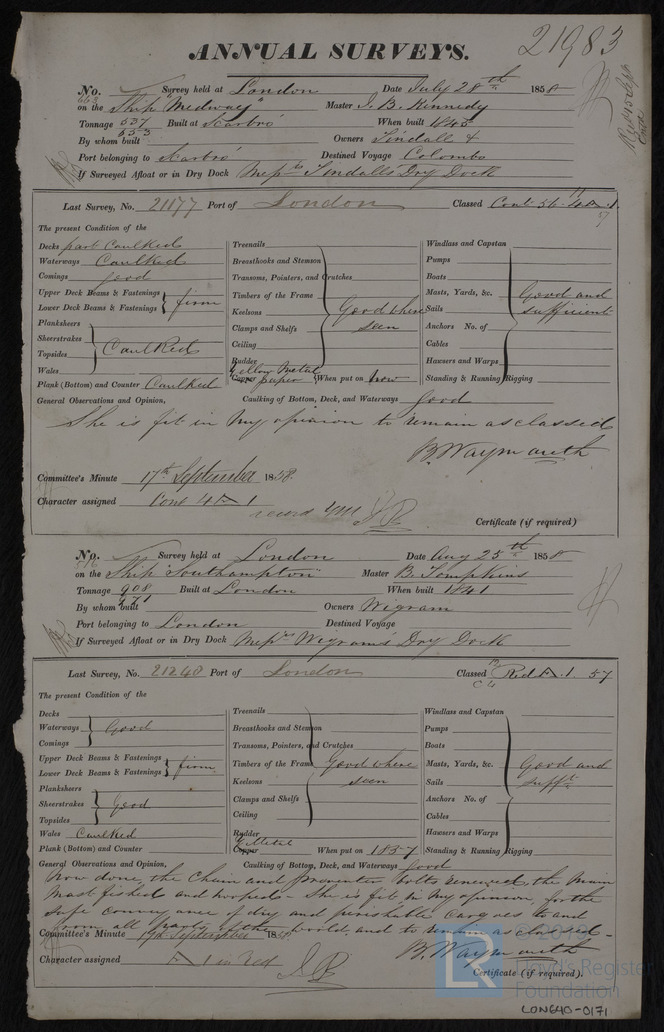 21983
ANNUAL SURVEYS.
No. 663 Survey held at London Date July 28th 1858
on the Ship "Medway" Master J. B. Kennedy
Tonnage 537 Built at Scarbro' When built 1845
653
By whom built Owners Tindall &
Port belonging to Scarbro' Destined Voyage Colombo
If Surveyed Afloat or in Dry Dock Messrs Tindalls Dry Dock
Last Survey, No. 21177 Port of London Classed Cont 56 4 A.1.
57
The present Condition of the
Decks part Caulked
Waterways Caulked
Comings good
Upper Deck Beams & Fastenings
Lower Deck Beams & Fastenings firm
Planksheers
Sheerstrakes
Topsides Caulked
Wales
Plank (Bottom) and Counter Caulked
Treenails
Breasthooks and Stemson
Transoms, Pointers, and Crutches
Timbers of the Frame
Keelsons Good where
Clamps and Shelfs seen
Ceiling
Rudder
Yellow Metal
Copper paper When put on now
Windlass and Capstan
Pumps
Boats
Masts, Yards, &c. Good and
Sails sufficient
Anchors No. of
Cables
Hawsers and Warps
Standing & Running Rigging
General Observations and Opinion, Caulking of Bottom, Deck, and Waterways good
She is fit in my opinion to remain as classed
B. Waymouth
Committee's Minute 17th September 1858.
Character assigned Cont 4 A 1
record YM
Certificate (if required)
No. Survey held at London Date Aug 25th 1858
on the Ship "Southampton" Master B. Tompkins
Tonnage 908 Built at London When built 1841
971
By whom built Owners Wigram
Port belonging to London Destined Voyage
If Surveyed Afloat or in Dry Dock Messrs Wigrams Dry Dock
Last Survey, No. 21248 Port of London Classed Red A.1. 57
The present Condition of the
Decks
Waterways Good
Comings
Upper Deck Beams & Fastenings
Lower Deck Beams & Fastenings firm
Planksheers
Sheerstrakes Good
Topsides
Wales Caulked
Plank (Bottom) and Counter
Treenails
Breasthooks and Stemson
Transoms, Pointers, and Crutches
Timbers of the Frame Good where
Keelsons seen
Clamps and Shelfs
Ceiling
Rudder
Y. Metal
Copper When put on 1857
Windlass and Capstan
Pumps
Boats
Masts, Yards, &c. Good and
Sails sufft
Anchors No. of
Cables
Hawsers and Warps
Standing & Running Rigging
General Observations and Opinion, Caulking of Bottom, Deck, and Waterways good
Now done, the Chain and Preventer bolts renewed, the main
mast fished and hooped - She is fit in my opinion, for the
safe conveyance of dry and perishable Cargoes to and
from all parts of the world, and to remain as classed -
B. Waymouth
Committee's Minute 17th September 1858
Character assigned A 1 in red
Certificate (if required).
© Lloyd's Register
Foundation
LR
LON640-0171